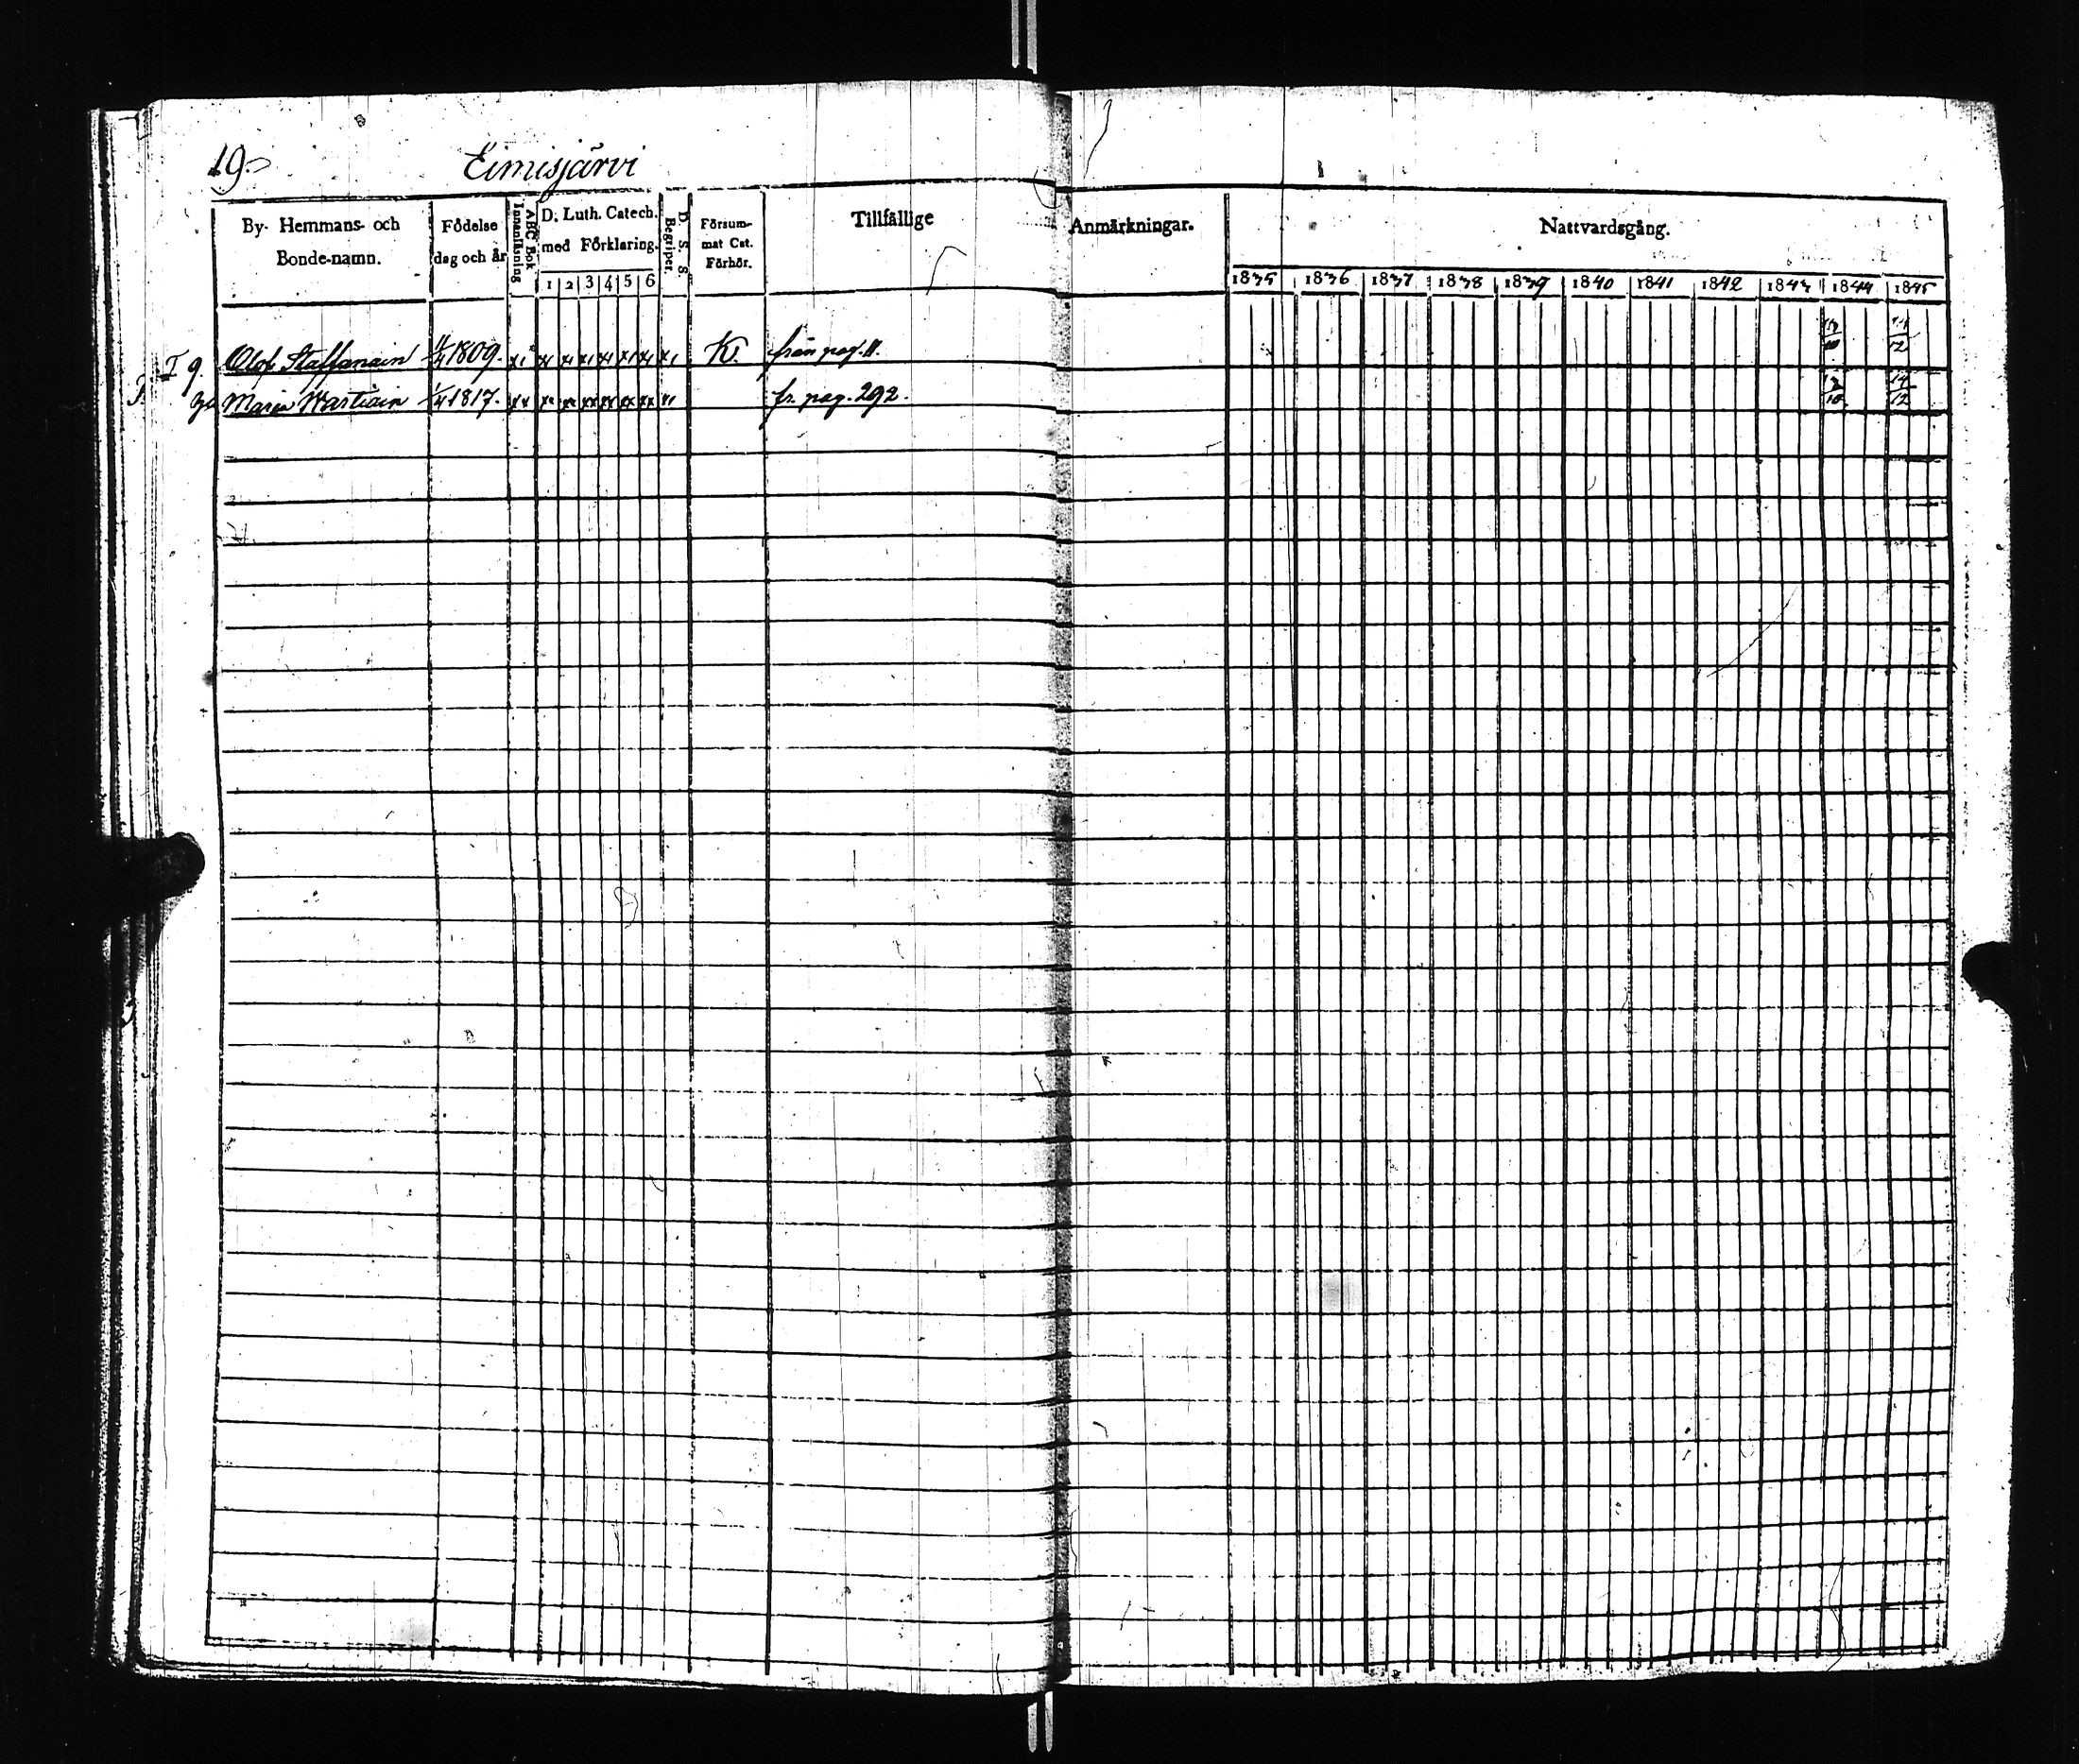 19.
Eimisjärvi
By- Hemmans- och Bonde-namn.
Födelse dag och år
ABC Bok Innanläsning
D. Luth. Catech. med Förklaring.
1 2 3 4 5 6
D. S. S. Begriper.
Försum- mat Cat. Förhör.
Tillfällige Anmärkningar.
Nattvardsgång.
1835 1836 1837 1838 1839 1840 1841 1842 1843 1844 1845
Olof Staffanain 1809. K. från pag. 11.
Maria Wartiain 1/4 1817. fr. pag. 292. 14/12